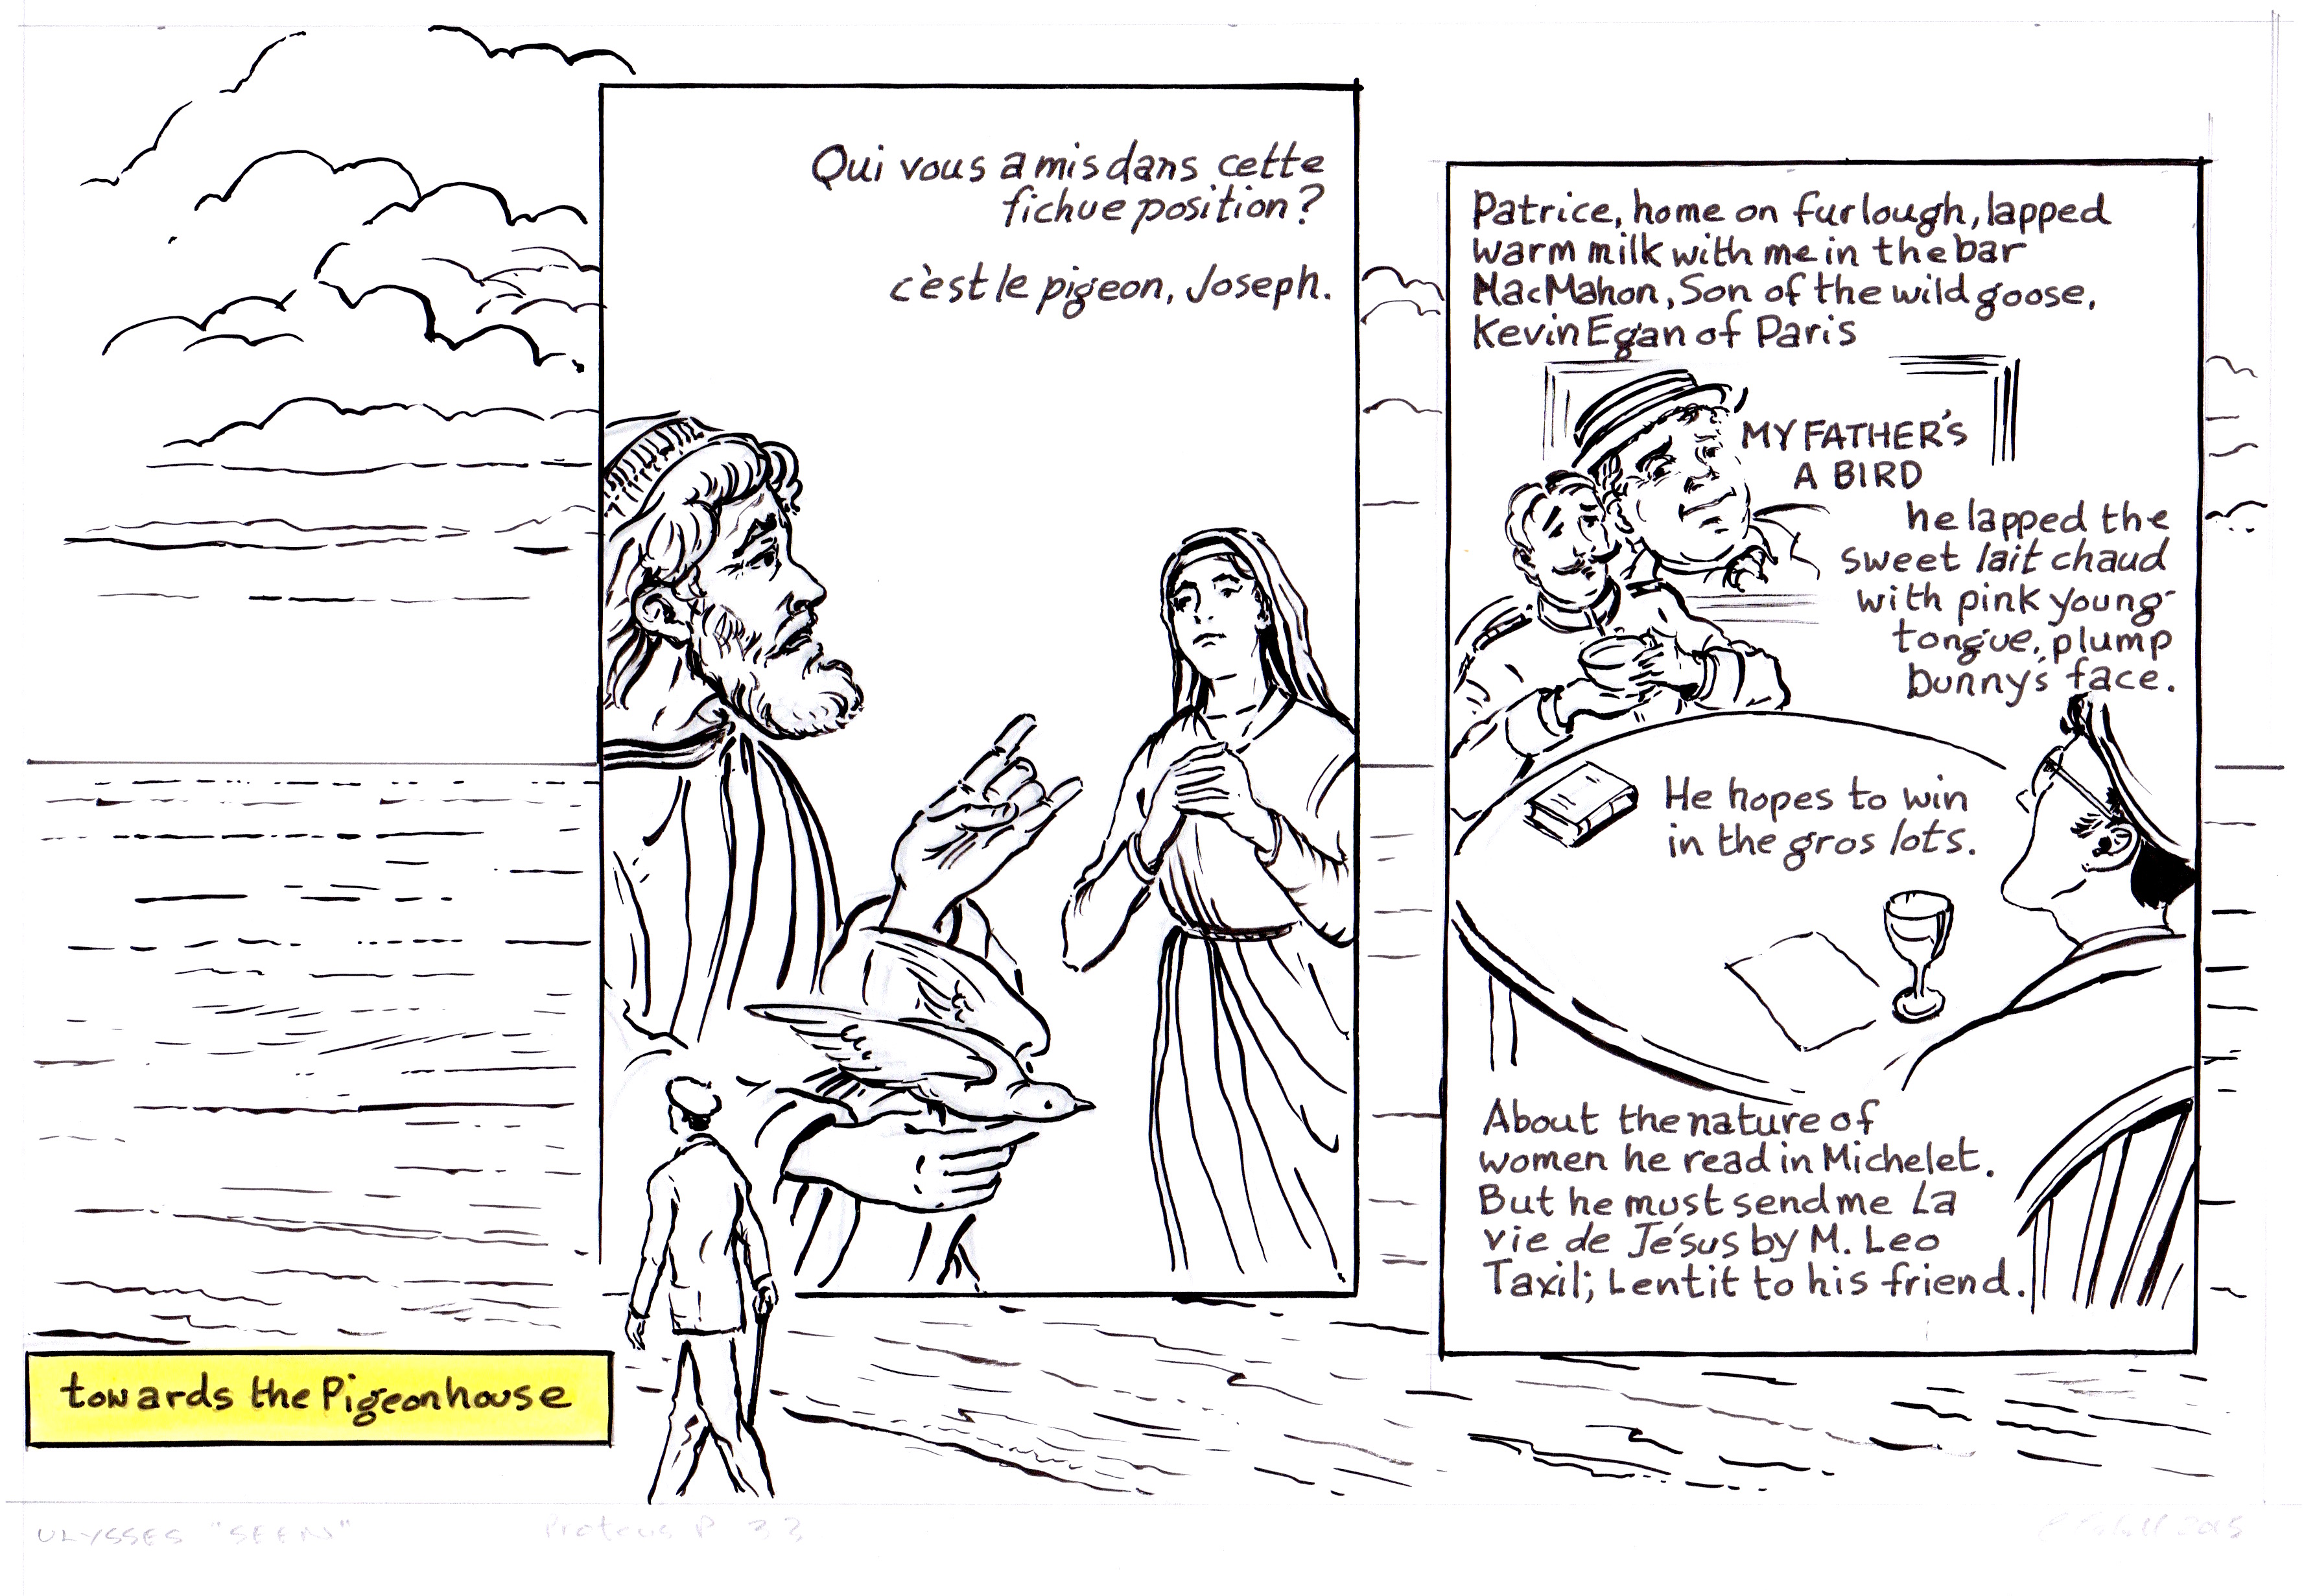 Qui vous a mis dans cette
fichue position?
c'est le pigeon, Joseph.
Patrice, home on furlough, lapped
warm milk with me in the bar
MacMahon, Son of the wild goose,
Kevin Egan of Paris
MY FATHER'S
A BIRD
he lapped the
sweet lait chaud
with pink young
tongue, plump
bunny's face.
He hopes to win
in the gros lots.
About the nature of
women he read in Michelet.
But he must send me La
vie de Jésus by M. Leo
Taxil; Lent it to his friend.
towards the Pigeonhouse
ULYSSES "SEEN"
Proteus P 33
2015